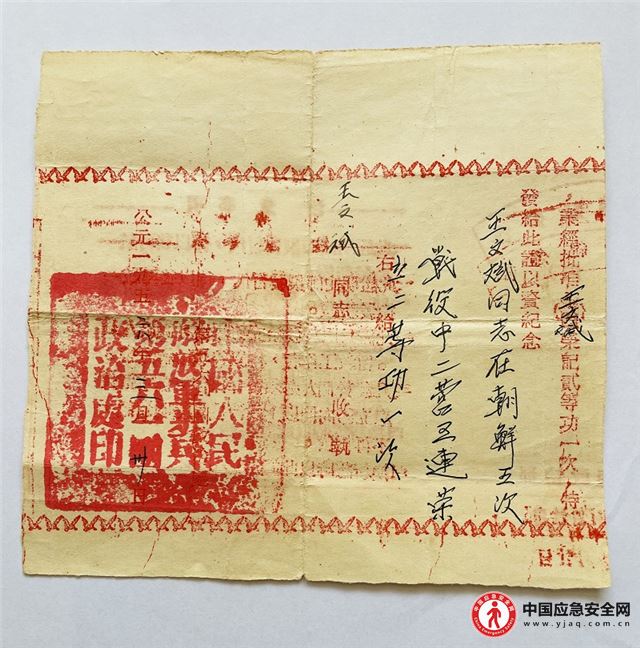 業經批准王文斌榮記貳等功一次，特
發給此證以資紀念
王文斌同志在朝鮮五次
戰役中二营五連荣
立二等功一次
右給
王文斌同志 收執
公元一九五 年三月 日
國人民
政治處印
中国应急安全网
中国应急安全网
www.yjaq.com.cn